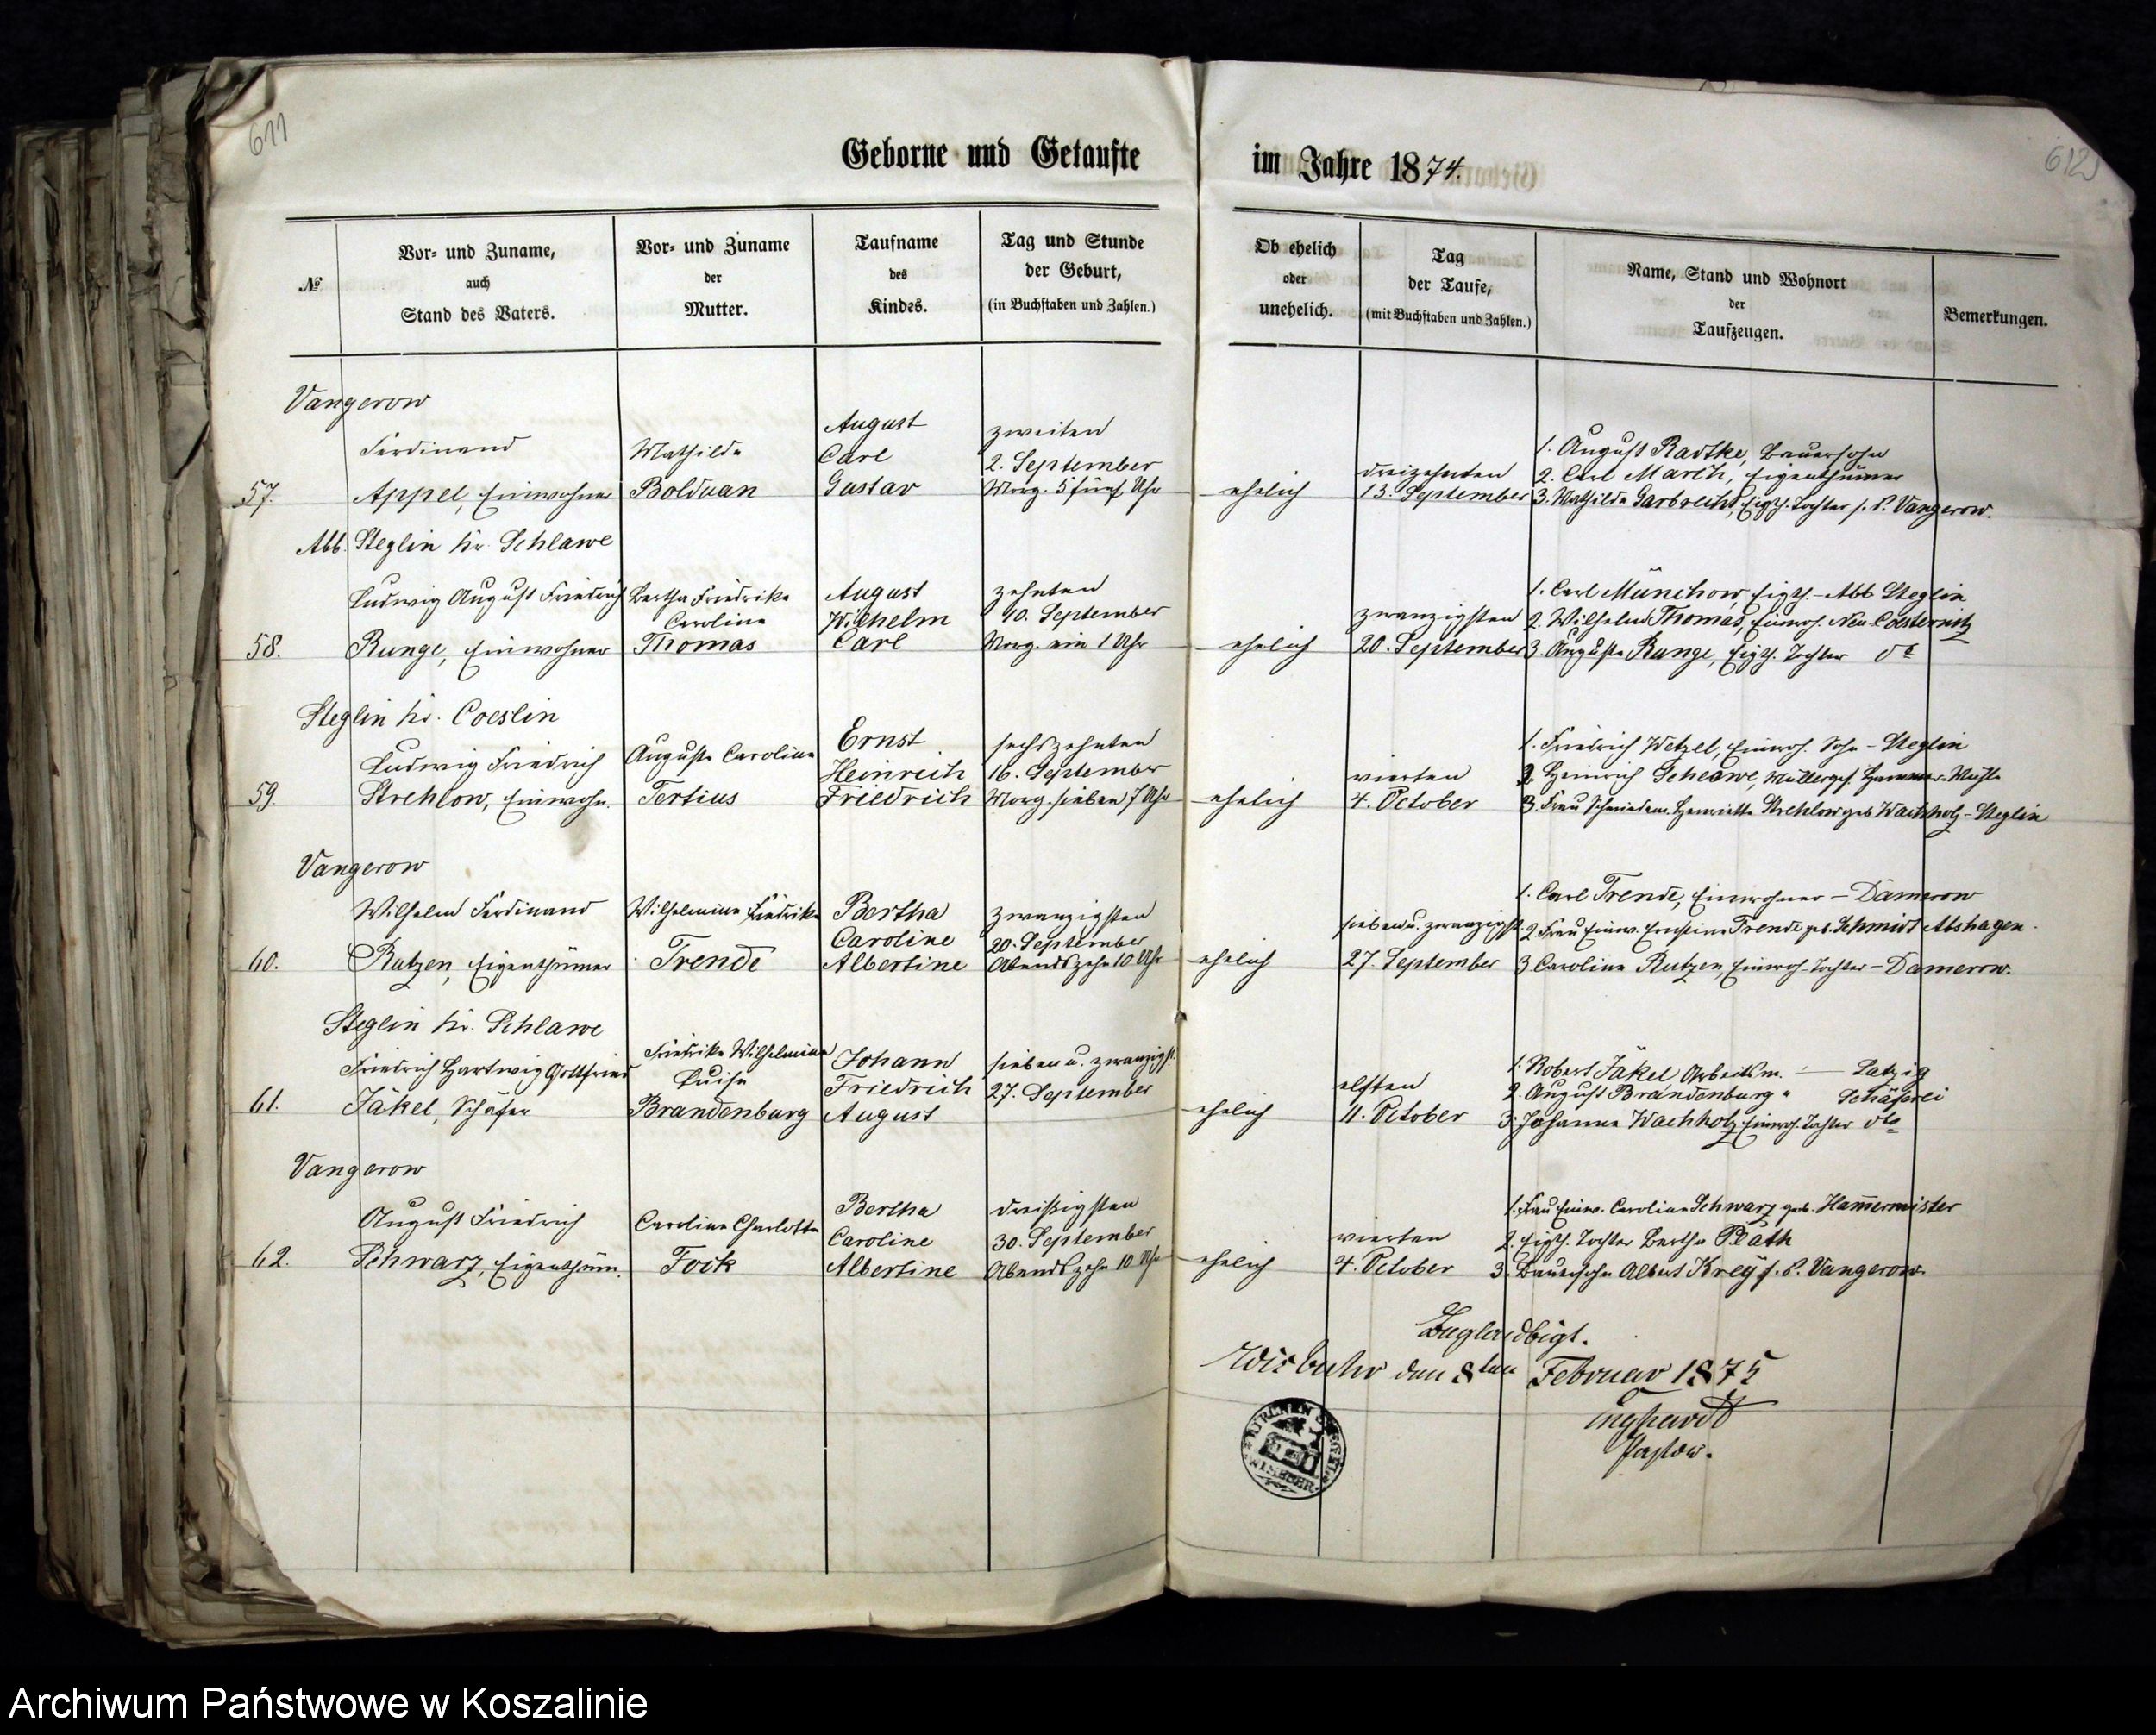 611
612
Geborne und Getaufte im Jahre 1874.
№
Vor- und Zuname,
auch
Stand des Vaters.
Vor- und Zuname
der
Mutter.
Taufname
des
Kindes.
Tag und Stunde
der Geburt,
(in Buchstaben und Zahlen.)
Ob ehelich
oder
unehelich.
Tag
der Taufe,
(mit Buchstaben und Zahlen.)
Name, Stand und Wohnort
der
Taufzeugen.
Bemerkungen.
Vangerow
57.
Ferdinand
Appel, Einwohner
Mathilde
Bolduan
August
Carl
Gustav
zweiten
2. September
Morg. 5 fünf Uhr
ehelich
dreizehnten
13. September
1. August Radtke, Bauersohn
2. Carl March, Eigenthümer
3. Mathilde Garbrecht, Eigth. Tochter s. P. Vangerow.
Abb. Steglin Kr. Schlawe
58.
Ludwig August Friedrich
Runge, Einwohner
Bertha Friedrike
Caroline
Thomas
August
Wilhelm
Carl
zehnten
10. September
Morg. ein 1 Uhr
ehelich
zwanzigsten
20. September
1. Carl Münchow, Eigth. - Abb Steglin
2. Wilhelm Thomas, Einwoh. Neu Costernitz
3. Auguste Runge, Eigth. Tochter do
Steglin Kr. Coeslin
59.
Ludwig Friedrich
Strehlow, Einwohn.
Auguste Caroline
Tertius
Ernst
Heinrich
Friedrich
sechszehnten
16. September
Morg. sieben 7 Uhr
ehelich
vierten
4. October
1. Friedrich Wetzel, Einwoh. Sohn - Steglin
2. Heinrich Schlawe, Müllerges. Hammer-Mühle
3. Frau Schmiedem. Henriette Strehlow geb Wachholz - Steglin
Vangerow
60.
Wilhelm Ferdinand
Rutzen, Eigenthümer
Wilhelmine Friedrike
Trende
Bertha
Caroline
Albertine
zwanzigsten
20. September
Abends zehn 10 Uhr
ehelich
sieben u. zwanzigst.
27. September
1. Carl Trende, Einwohner - Damerow
2. Frau Einw. Ernstine Trende geb. Schmidt Abshagen.
3. Caroline Rutzen, Einwoh. Tochter - Damerow.
Steglin Kr. Schlawe
61.
Friedrich Hartwig Gottfried
Jäkel, Schäfer
Friedrike Wilhelmine
Luise
Brandenburg
Johann
Friedrich
August
sieben u. zwanzigst.
27. September
ehelich
elften
11. October
1. Robert Jäkel Arbeitsm. - Latzig
2. August Brandenburg " Schäferei
3. Johanna Wachholz Einwoh. Tochter dto
Vangerow
62.
August Friedrich
Schwarz, Eigenthüm.
Caroline Charlotte
Fock
Bertha
Caroline
Albertine
dreißigsten
30. September
Abends zehn 10 Uhr
ehelich
vierten
4. October
1. Frau Einw. Caroline Schwarz geb. Ham̅ermeister
2. Eigth. Tochter Bertha Plath
3. Bauersohn Albert Krey s. P. Vangerow.
Beglaubigt.
Wisbuhr den 8ten Februar 1875
Pastor.
KIRCHEN SIEGEL
Archiwum Państwowe w Koszalinie